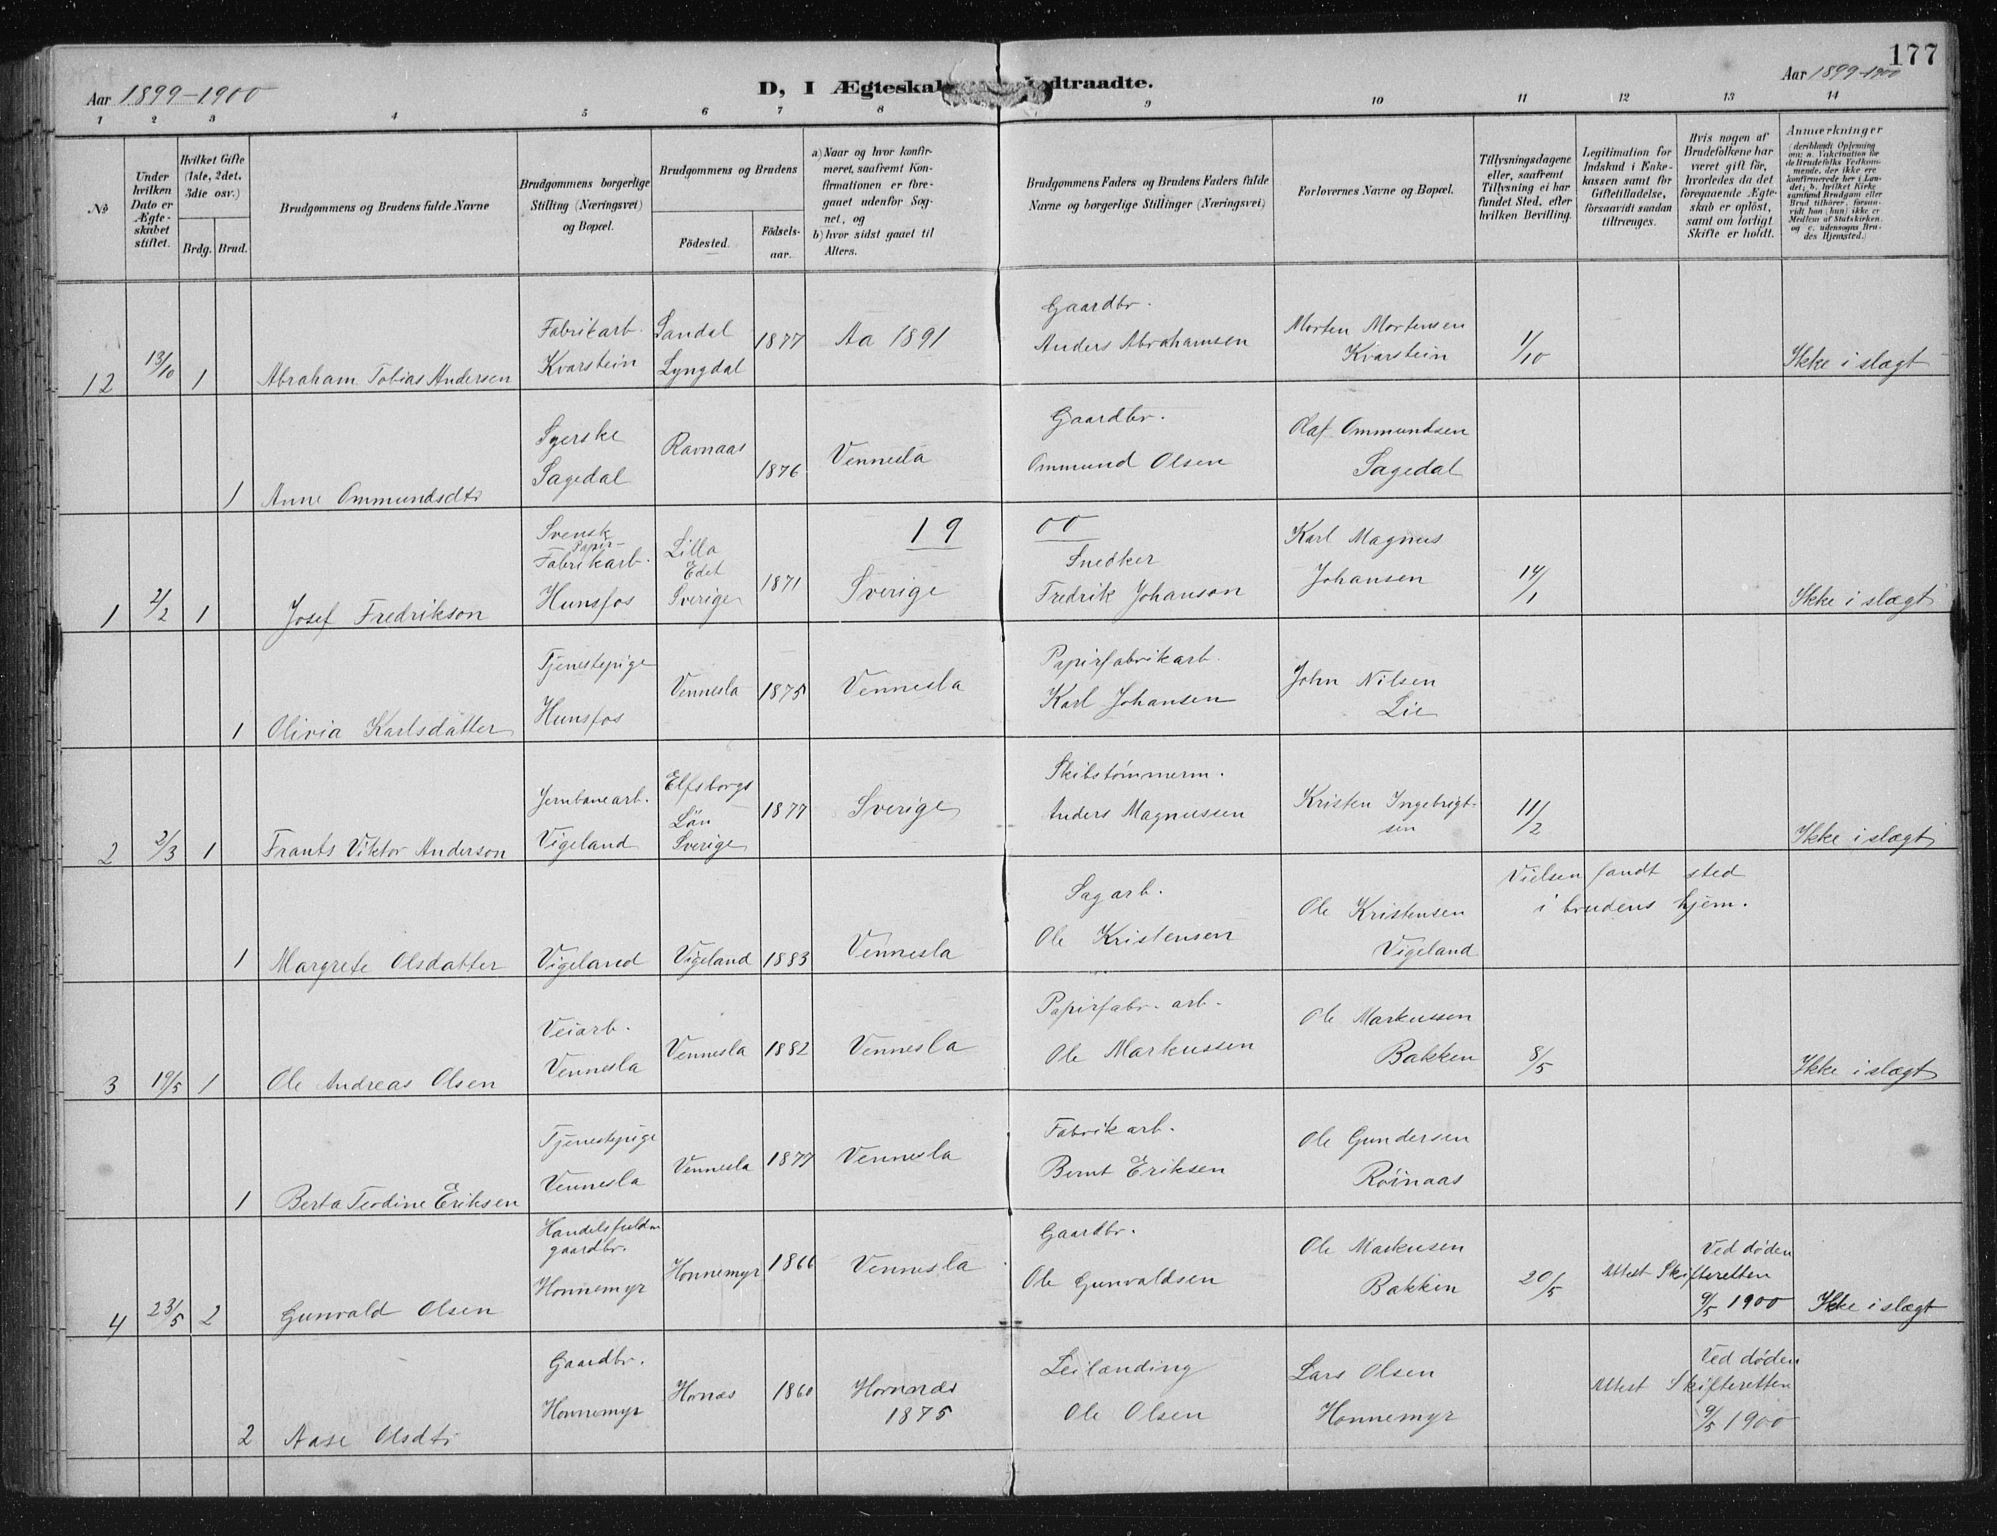 177
Aar 1899-1900
D, I Ægteskab Indtraadte.
Aar 1899-1900
1 2 3 4 5 6 7 8 9 10 11 12 13 14
No
Under hvilken Dato er Ægteskabet stiftet.
Hvilket Gifte (1ste, 2det, 3die osv.)
Brdg. Brud.
Brudgommens og Brudens fulde Navne
Brudgommens borgerlige Stilling (Næringsvei) og Bopæl.
Brudgommens og Brudens
Födested.
Födselsaar.
a) Naar og hvor konfirmeret, saafremt Konfirmationen er foregaaet udenfor Sognet, og
b) hvor sidst gaaet til Alters.
Brudgommens Faders og Brudens Faders fulde Navne og borgerlige Stillinger (Næringsvei)
Forlovernes Navne og Bopæl.
Tillysningsdagene eller, saafremt Tillysning ei har fundet Sted, efter hvilken Bevilling.
Legitimation for Indskud i Enkekassen samt for Giftetilladelse, forsaavidt saadan tiltrænges.
Hvis nogen af Brudefolkene har været gift før, hvorledes da det foregaaende Ægteskab er opløst, samt om lovligt Skifte er holdt.
Anmærkninger
(deriblandt Oplysning om: a. Vakcination for de Brudefolks Vedkommende, der ikke ere konfirmerede her i Landet; b. hvilket Kirkesamfund Brudgom eller Brud tilhører, forsaavidt han (hun) ikke er Medlem af Statskirken, og c. udensogns Brudes Hjemsted.)
12 13/10 1 Abraham Tobias Andersen
Fabrikarb. Kvarstein
Sandal Lyngdal
1877
Aa 1891
Gaardbr. Anders Abrahamsen
Morten Mortensen Kvarstein
1/10
Ikke i slægt
1 Anne Ommundsdtr
Syerske Sagedal
Ravnaas
1876
Vennesla
Gaardbr. Ommund Olsen
Olaf Ommundsen Sagedal
1900
1 2/2 1 Josef Fredrikson
Svensk Papir-Fabrikarb. Hunsfos
Lilla Edet Sverige
1871
Sverige
Snedker Fredrik Johanson
Karl Magnus Johansen
14/1
Ikke i slægt
1 Olivia Karlsdatter
Tjenestepige Hunsfos
Vennesla
1875
Vennesla
Papirfabrikarb. Karl Johansen
John Nilsen Lie
2 2/3 1 Frants Viktor Anderson
Jernbanearb. Vigeland
Elfsborgs Län Sverige
1877
Sverige
Skibstømmerm. Anders Magnussen
Kristen Ingebrigtsen
11/2
Ikke i slægt
1 Margrete Olsdatter
Vigeland
Vigeland
1883
Vennesla
Sagarb. Ole Kristensen
Ole Kristensen Vigeland
Vielsen fandt sted i brudens hjem.
3 19/5 1 Ole Andreas Olsen
Veiarb. Vennesla
Vennesla
1882
Vennesla
Papirfabr. arb. Ole Markussen
Ole Markussen Bakken
8/5
Ikke i slægt
1 Berta Teodine Eriksen
Tjenestepige Vennesla
Vennesla
1877
Vennesla
Fabrikarb. Bernt Eriksen
Ole Gundersen Roinaas
4 23/5 2 Gunvald Olsen
gaardbr. Honnemyr
Honnemyr
1866
Vennesla
Gaardbr. Ole Gunvaldsen
Ole Markusen Bakken
20/5
Attest Skifteretten
Ved døden
9/5 1900
Ikke i slægt
2 Aase Olsdtr
Gaardbr. Honnemyr
Hornæs
1860
Hornnæs 1875
Leilænding Ole Olsen
Lars Olsen Honnemyr
Attest Skifteretten
Ved døden
9/5 1900